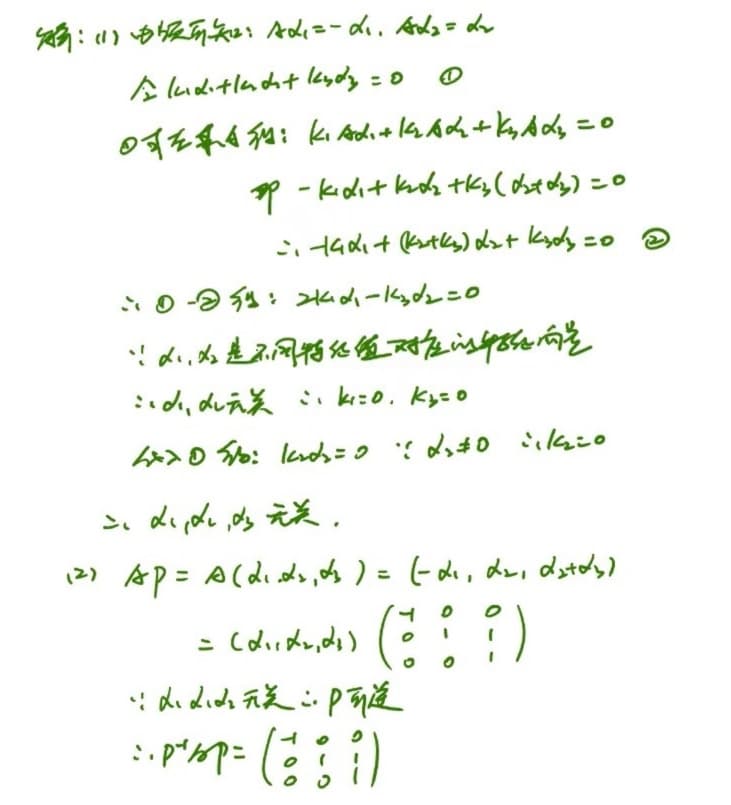 解：(1) 由题可知：Aα₁=-α₁, Aα₂=α₂
令 k₁α₁+k₂α₂+k₃α₃=0 ①
①式左乘A得：k₁Aα₁+k₂Aα₂+k₃Aα₃=0
即 -k₁α₁+k₂α₂+k₃(α₂+α₃)=0
∴ -k₁α₁+(k₂+k₃)α₂+k₃α₃=0 ②
∴ ①-②得：2k₁α₁-k₃α₂=0
∵ α₁,α₂是不同特征值对应的特征向量
∴ α₁,α₂无关 ∴ k₁=0, k₃=0
代入①得：k₂α₂=0 ∵ α₂≠0 ∴ k₂=0
∴ α₁,α₂,α₃无关.
(2) AP=A(α₁,α₂,α₃)=(-α₁, α₂, α₂+α₃)
=(α₁,α₂,α₃) (-1 0 0
0 1 1
0 0 1)
∵ α₁α₂α₃无关 ∴ P可逆
∴ P⁻¹AP= (-1 0 0
0 1 1
0 0 1)